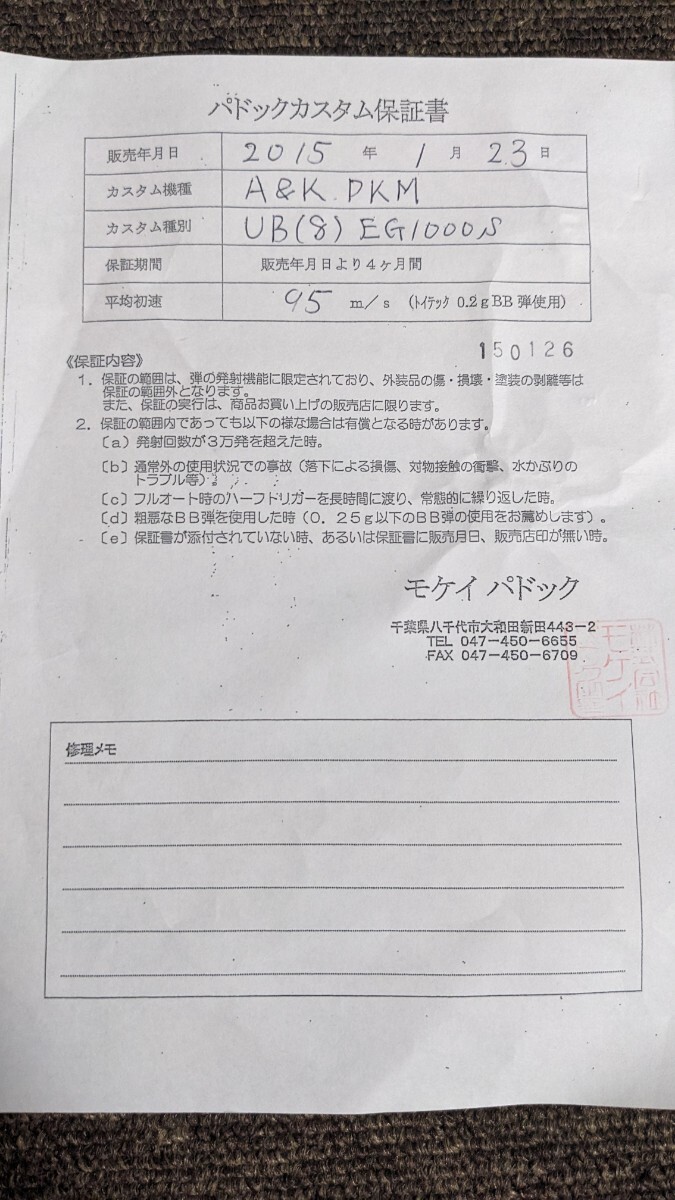 パドックカスタム保証書
販売年月日 2015 年 1 月 23 日
カスタム機種 A&K. PKM
カスタム種別 UB(8) EG1000S
保証期間 販売年月日より4ヶ月間
平均初速 95 m/s (トイテック 0.2gBB弾使用)
150126
《保証内容》
1. 保証の範囲は、弾の発射機能に限定されており、外装品の傷・損壊・塗装の剥離等は
保証の範囲外となります。
また、保証の実行は、商品お買い上げの販売店に限ります。
2. 保証の範囲内であっても以下の様な場合は有償となる時があります。
〔a〕発射回数が3万発を超えた時。
〔b〕通常外の使用状況での事故（落下による損傷、対物接触の衝撃、水かぶりの
トラブル等）。
〔c〕フルオート時のハーフトリガーを長時間に渡り、常態的に繰り返した時。
〔d〕粗悪なBB弾を使用した時（0.25g以下のBB弾の使用をお薦めします）。
〔e〕保証書が添付されていない時、あるいは保証書に販売月日、販売店印が無い時。
モケイ パドック
千葉県八千代市大和田新田443-2
TEL 047-450-6655
FAX 047-450-6709
モケイ
修理メモ